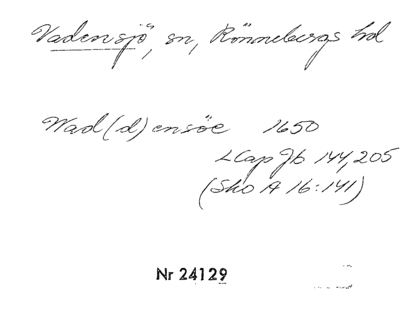 Vadensjö, sn, Rönnebergs hd
Wad(d)ensöe 1650
LCap Jb 144, 205
(Sko A 16:141)
Nr 24129